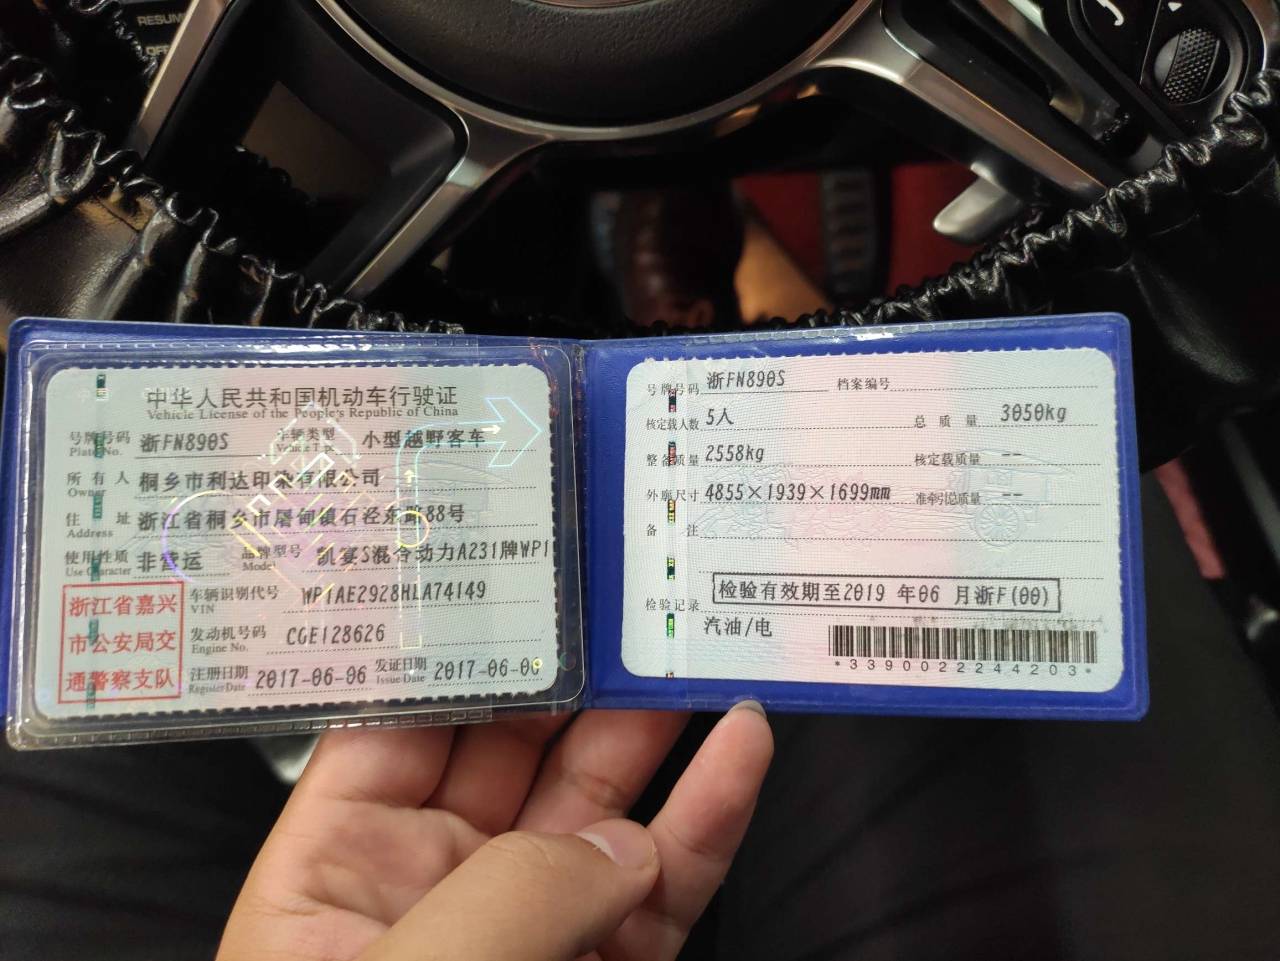 RESUME
OFF
中华人民共和国机动车行驶证
Vehicle License of the People's Republic of China
号牌号码 浙FN890S 车辆类型 小型越野客车
Plate No. Vehicle Type
所有人 桐乡市利达印染有限公司
Owner
住址 浙江省桐乡市屠甸镇石泾东路88号
Address
使用性质 非营运 品牌型号 凯宴S混合动力A231牌WP1
Use Character Model
浙江省嘉兴
市公安局交
通警察支队
车辆识别代号 WP1AE2928HLA74149
VIN
发动机号码 CGE128626
Engine No.
注册日期 2017-06-06 发证日期 2017-06-06
Register Date Issue Date
号牌号码 浙FN890S 档案编号
核定载人数 5人 总质量 3050kg
整备质量 2558kg 核定载质量 --
外廓尺寸 4855×1939×1699mm 准牵引总质量 --
备注
检验记录 检验有效期至2019 年06 月浙F(00)
汽油/电
*3390022244203*